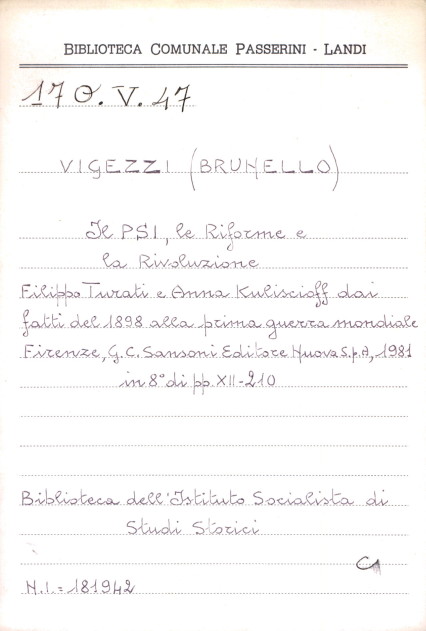 BIBLIOTECA COMUNALE PASSERINI - LANDI
17 O. V. 47
VIGEZZI (BRUNELLO)
Il PSI, le Riforme e
la Rivoluzione
Filippo Turati e Anna Kuliscioff dai
fatti del 1898 alla prima guerra mondiale
Firenze, G.C. Sansoni Editore Nuova S.p.A, 1981
in 8° di pp. XII-210
Biblioteca dell'Istituto Socialista di
Studi Storici
C1
N.I. = 181942